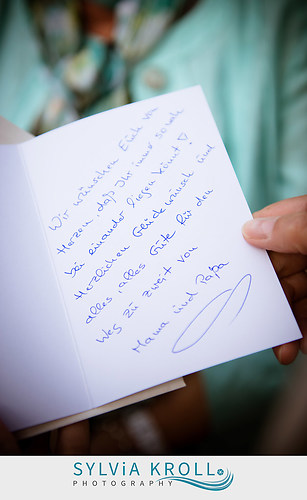 Wir wünschen Euch von
Herzen, daß Ihr immer so nah
bei einander liegen könnt! ♡
Herzlichen Glückwunsch und
alles, alles Gute für den
Weg zu zweit von
Mama und Papa
SYLViA KROLL
PHOTOGRAPHY